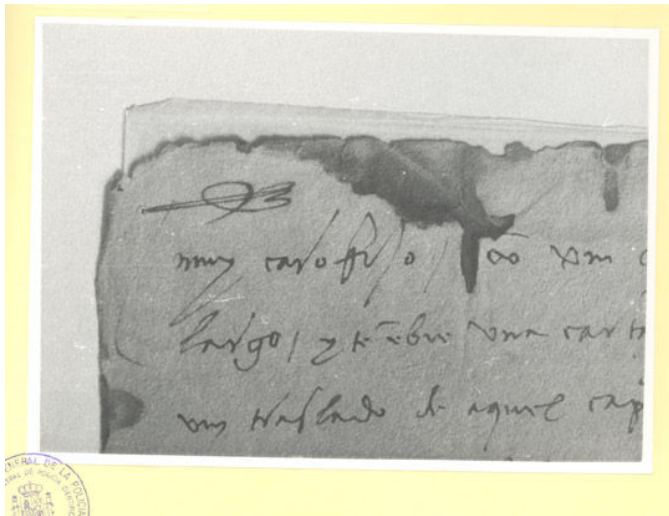 muy caro fijo / con vn
largo / y te enbie vna carta
vn traslado de aquel cap
NERAL DE LA POLICIA